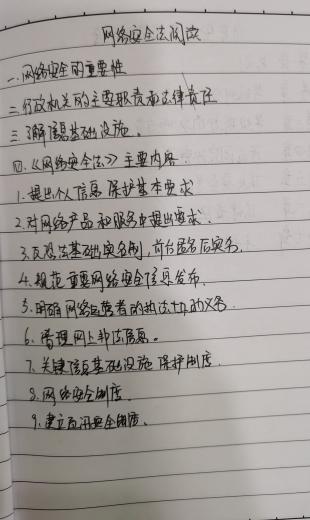 网络安全法阅读
一.网络安全的重要性
二.行政机关的主要职责和法律责任
三.了解信息基础设施.
四.《网络安全法》主要内容
1.提出个人信息保护基本要求
2.对网络产品和服务提出要求.
3.法基础实名制,前台匿名后实名.
4.规范重要网络安全信息发布.
5.明确网络运营者的执法协助义务.
6.管理网上非法信息。
7.关键信息基础设施保护制度.
8.网络安全制度.
9.建立安全制度.